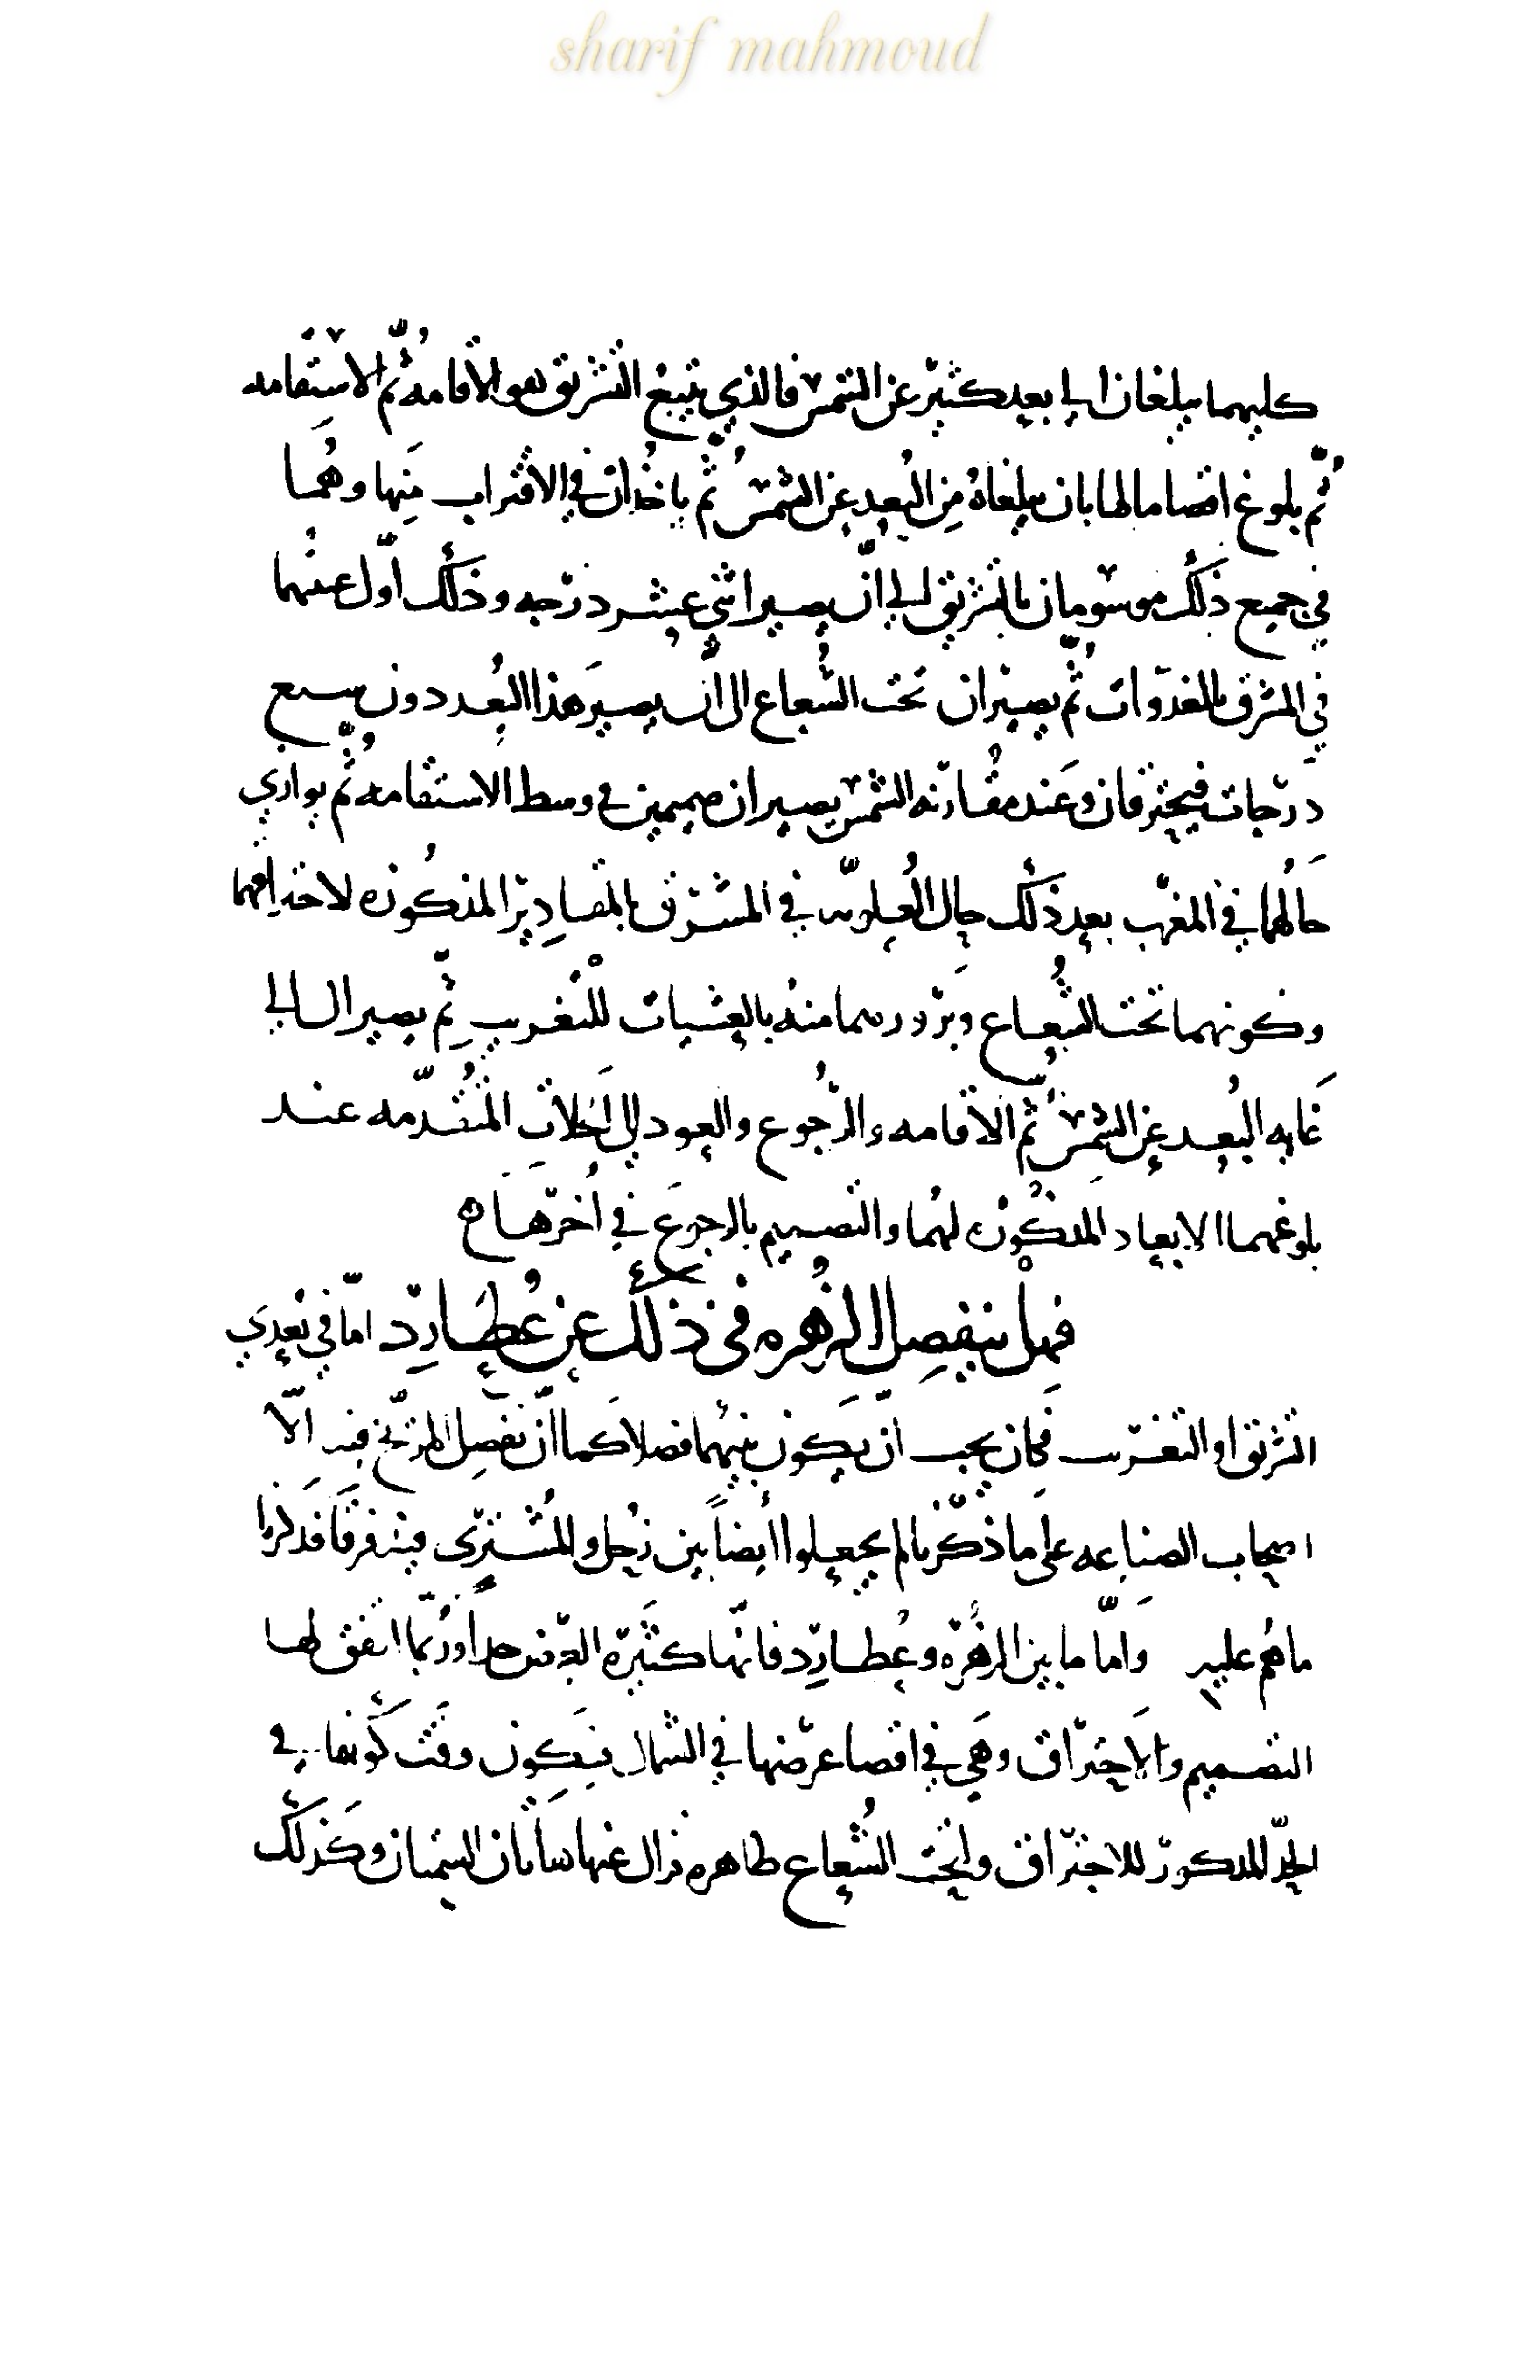 sharif mahmoud
كليهما يبلغان الى بعد كثير عن الشمس فالذي يتبع التشريق هو الاقامه ثم الاستقامه
ثم بلوغ اقصا ما لها بان يبلغاه من البعد عن الشمس ثم ياخذان في الاقتراب منها وهما
في جميع ذلك موسومان بالتشريق الى ان يصير اثني عشر درجه وذلك اول
في المشرق بالغدوات ثم يصيران تحت الشعاع الى ان يصير هذا البعد دون سبع
درجات فيحترقان وعند مقارنه الشمس يصيران صميمين في وسط الاستقامه ثم يوازي
حالهما في المغرب بعد ذلك حال العلويه في المشرق بالمقادير المذكوره لاحتراقهما
وكونهما تحت الشعاع وبروزهما منه بالعشيات للتغريب ثم يصيران الى
غايه البعد عن الشمس ثم الاقامه والرجوع والعود الى الحالات المتقدمه عند
بلوغهما الابعاد المذكوره لهما والتصميم بالرجوع في اخرها ه
فهل ينفصل الزهره في ذلك عن عطارد اما في بعدي
التشريق او التغريب فكان يجب ان يكون بينهما فصلا كما ان تفصل المريخ فيه الا
اصحاب الصناعه على ما ذكرنا لم يجعلوا ايضا بين زحل والمشتري فيه فرقا فذكرنا
ما هم عليه واما ما بين الزهره وعطارد فانها كثيره العرض جدا وربما اتفق لها
التصميم والاحتراق وهي في اقصا عرضها في الشمال فيكون وقت كونها في
الحد المذكور للاحتراق وتحت الشعاع ظاهره فزال عنها هاتان السمتان وكذلك